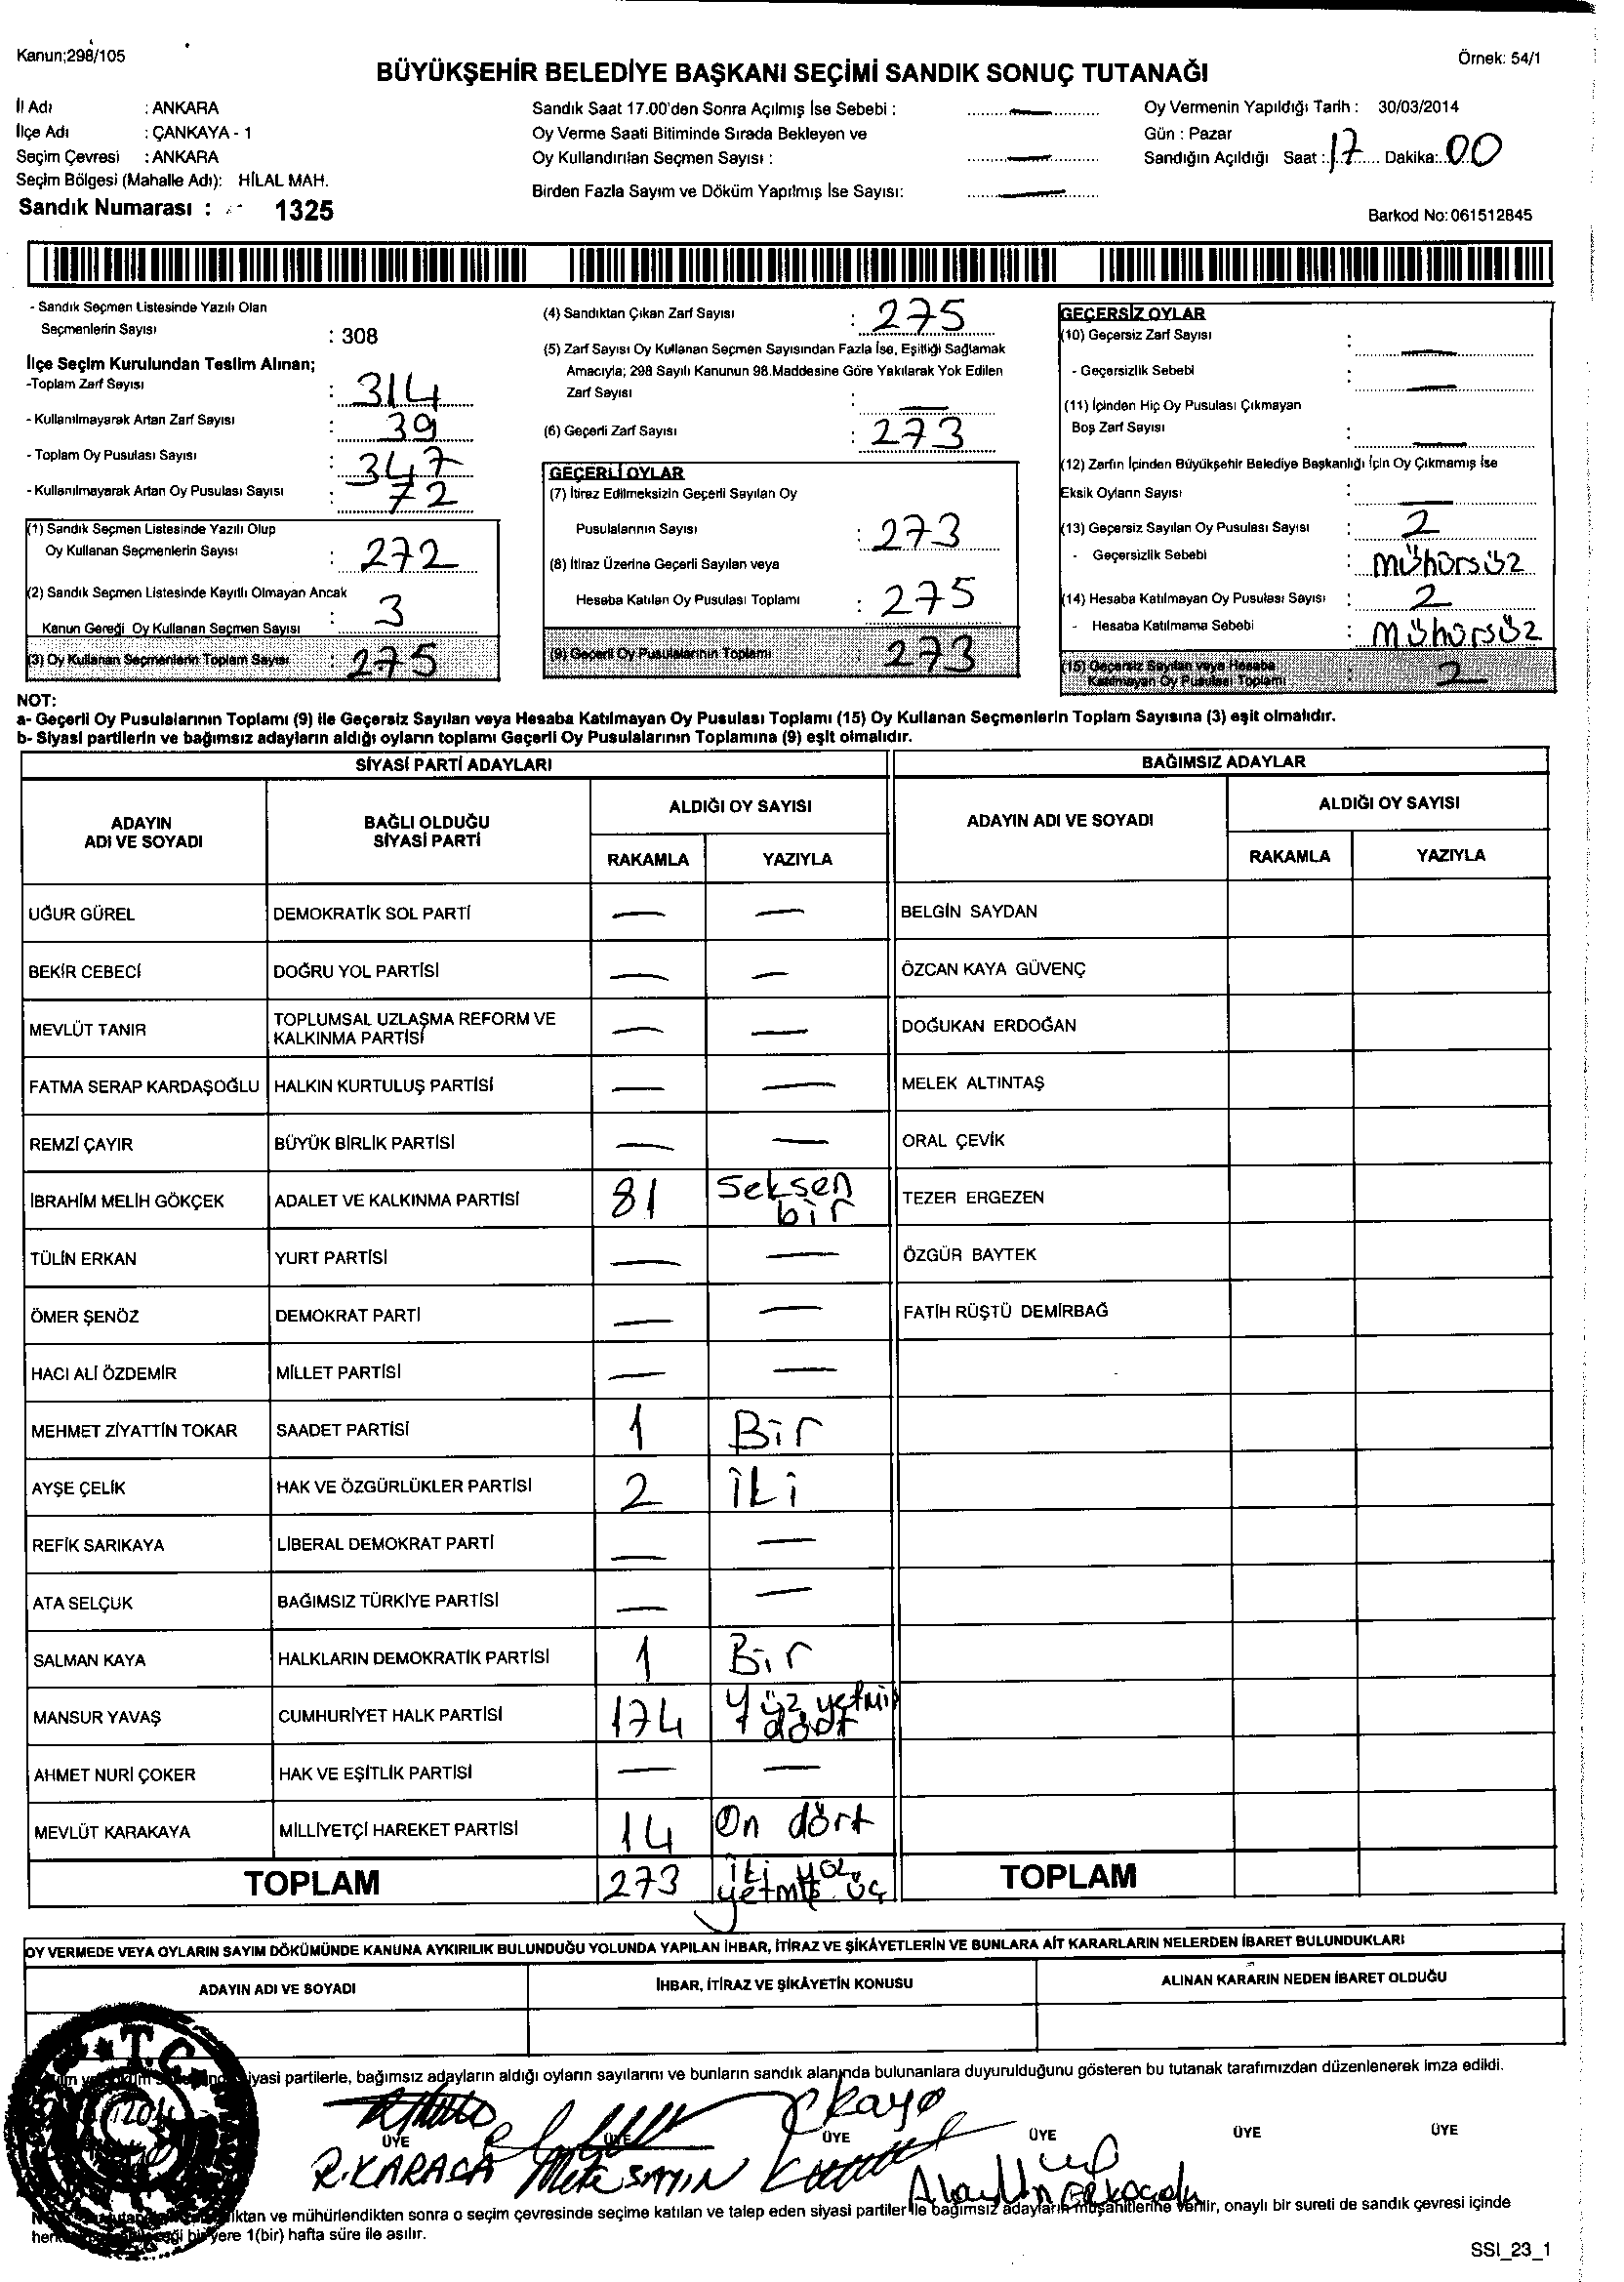 Kanun;298/105
Örnek: 54/1
BÜYÜKŞEHİR BELEDİYE BAŞKANI SEÇİMİ SANDIK SONUÇ TUTANAĞI
İl Adı : ANKARA
İlçe Adı : ÇANKAYA - 1
Seçim Çevresi : ANKARA
Seçim Bölgesi (Mahalle Adı): HİLAL MAH.
Sandık Numarası : 1325
Sandık Saat 17.00'den Sonra Açılmış İse Sebebi : —
Oy Verme Saati Bitiminde Sırada Bekleyen ve
Oy Kullandırılan Seçmen Sayısı : —
Birden Fazla Sayım ve Döküm Yapılmış İse Sayısı: —
Oy Vermenin Yapıldığı Tarih : 30/03/2014
Gün : Pazar
Sandığın Açıldığı Saat : 17 Dakika: 00
Barkod No: 061512845
- Sandık Seçmen Listesinde Yazılı Olan
Seçmenlerin Sayısı : 308
İlçe Seçim Kurulundan Teslim Alınan;
-Toplam Zarf Sayısı : 314
- Kullanılmayarak Artan Zarf Sayısı : 39
- Toplam Oy Pusulası Sayısı : 347
- Kullanılmayarak Artan Oy Pusulası Sayısı : 72
(1) Sandık Seçmen Listesinde Yazılı Olup
Oy Kullanan Seçmenlerin Sayısı : 272
(2) Sandık Seçmen Listesinde Kayıtlı Olmayan Ancak
Kanun Gereği Oy Kullanan Seçmen Sayısı : 3
(3) Oy Kullanan Seçmenlerin Toplam Sayısı : 275
(4) Sandıktan Çıkan Zarf Sayısı : 275
(5) Zarf Sayısı Oy Kullanan Seçmen Sayısından Fazla İse, Eşitliği Sağlamak
Amacıyla; 298 Sayılı Kanunun 98.Maddesine Göre Yakılarak Yok Edilen
Zarf Sayısı : —
(6) Geçerli Zarf Sayısı : 273
GEÇERLİ OYLAR
(7) İtiraz Edilmeksizin Geçerli Sayılan Oy
Pusulalarının Sayısı : 273
(8) İtiraz Üzerine Geçerli Sayılan veya
Hesaba Katılan Oy Pusulası Toplamı : 275
(9) Geçerli Oy Pusulalarının Toplamı 273
GEÇERSİZ OYLAR
(10) Geçersiz Zarf Sayısı : —
- Geçersizlik Sebebi : —
(11) İçinden Hiç Oy Pusulası Çıkmayan
Boş Zarf Sayısı : —
(12) Zarfın İçinden Büyükşehir Belediye Başkanlığı İçin Oy Çıkmamış İse
Eksik Oyların Sayısı : —
(13) Geçersiz Sayılan Oy Pusulası Sayısı : 2
- Geçersizlik Sebebi : mühürsüz
(14) Hesaba Katılmayan Oy Pusulası Sayısı : 2
- Hesaba Katılmama Sebebi : mühürsüz
(15) Geçersiz Sayılan veya Hesaba
Katılmayan Oy Pusulası Toplamı : 2
NOT:
a- Geçerli Oy Pusulalarının Toplamı (9) ile Geçersiz Sayılan veya Hesaba Katılmayan Oy Pusulası Toplamı (15) Oy Kullanan Seçmenlerin Toplam Sayısına (3) eşit olmalıdır.
b- Siyasi partilerin ve bağımsız adayların aldığı oyların toplamı Geçerli Oy Pusulalarının Toplamına (9) eşit olmalıdır.
SİYASİ PARTİ ADAYLARI BAĞIMSIZ ADAYLAR
ADAYIN ADI VE SOYADI BAĞLI OLDUĞU SİYASİ PARTİ ALDIĞI OY SAYISI ADAYIN ADI VE SOYADI ALDIĞI OY SAYISI
RAKAMLA YAZIYLA RAKAMLA YAZIYLA
UĞUR GÜREL DEMOKRATİK SOL PARTİ — — BELGİN SAYDAN
BEKİR CEBECİ DOĞRU YOL PARTİSİ — — ÖZCAN KAYA GÜVENÇ
MEVLÜT TANIR TOPLUMSAL UZLAŞMA REFORM VE KALKINMA PARTİSİ — — DOĞUKAN ERDOĞAN
FATMA SERAP KARDAŞOĞLU HALKIN KURTULUŞ PARTİSİ — — MELEK ALTINTAŞ
REMZİ ÇAYIR BÜYÜK BİRLİK PARTİSİ — — ORAL ÇEVİK
İBRAHİM MELİH GÖKÇEK ADALET VE KALKINMA PARTİSİ 81 Seksen bir TEZER ERGEZEN
TÜLİN ERKAN YURT PARTİSİ — — ÖZGÜR BAYTEK
ÖMER ŞENÖZ DEMOKRAT PARTİ — — FATİH RÜŞTÜ DEMİRBAĞ
HACI ALİ ÖZDEMİR MİLLET PARTİSİ — —
MEHMET ZİYATTİN TOKAR SAADET PARTİSİ 1 Bir
AYŞE ÇELİK HAK VE ÖZGÜRLÜKLER PARTİSİ 2 iki
REFİK SARIKAYA LİBERAL DEMOKRAT PARTİ — —
ATA SELÇUK BAĞIMSIZ TÜRKİYE PARTİSİ — —
SALMAN KAYA HALKLARIN DEMOKRATİK PARTİSİ 1 Bir
MANSUR YAVAŞ CUMHURİYET HALK PARTİSİ 174 Yüz yetmiş dört
AHMET NURİ ÇOKER HAK VE EŞİTLİK PARTİSİ — —
MEVLÜT KARAKAYA MİLLİYETÇİ HAREKET PARTİSİ 14 On dört
TOPLAM 273 iki yüz yetmiş üç TOPLAM
OY VERMEDE VEYA OYLARIN SAYIM DÖKÜMÜNDE KANUNA AYKIRILIK BULUNDUĞU YOLUNDA YAPILAN İHBAR, İTİRAZ VE ŞİKÂYETLERİN VE BUNLARA AİT KARARLARIN NELERDEN İBARET BULUNDUKLARI
ADAYIN ADI VE SOYADI İHBAR, İTİRAZ VE ŞİKÂYETİN KONUSU ALINAN KARARIN NEDEN İBARET OLDUĞU
T.C.
siyasi partilerle, bağımsız adayların aldığı oyların sayılarını ve bunların sandık alanında bulunanlara duyurulduğunu gösteren bu tutanak tarafımızdan düzenlenerek imza edildi.
ÜYE ÜYE ÜYE ÜYE ÜYE ÜYE
R.KARACA Mete SAYIN
ve mühürlendikten sonra o seçim çevresinde seçime katılan ve talep eden siyasi partiler ile bağımsız adayların müşahitlerine verilir, onaylı bir sureti de sandık çevresi içinde
bir yere 1(bir) hafta süre ile asılır.
SSI_23_1